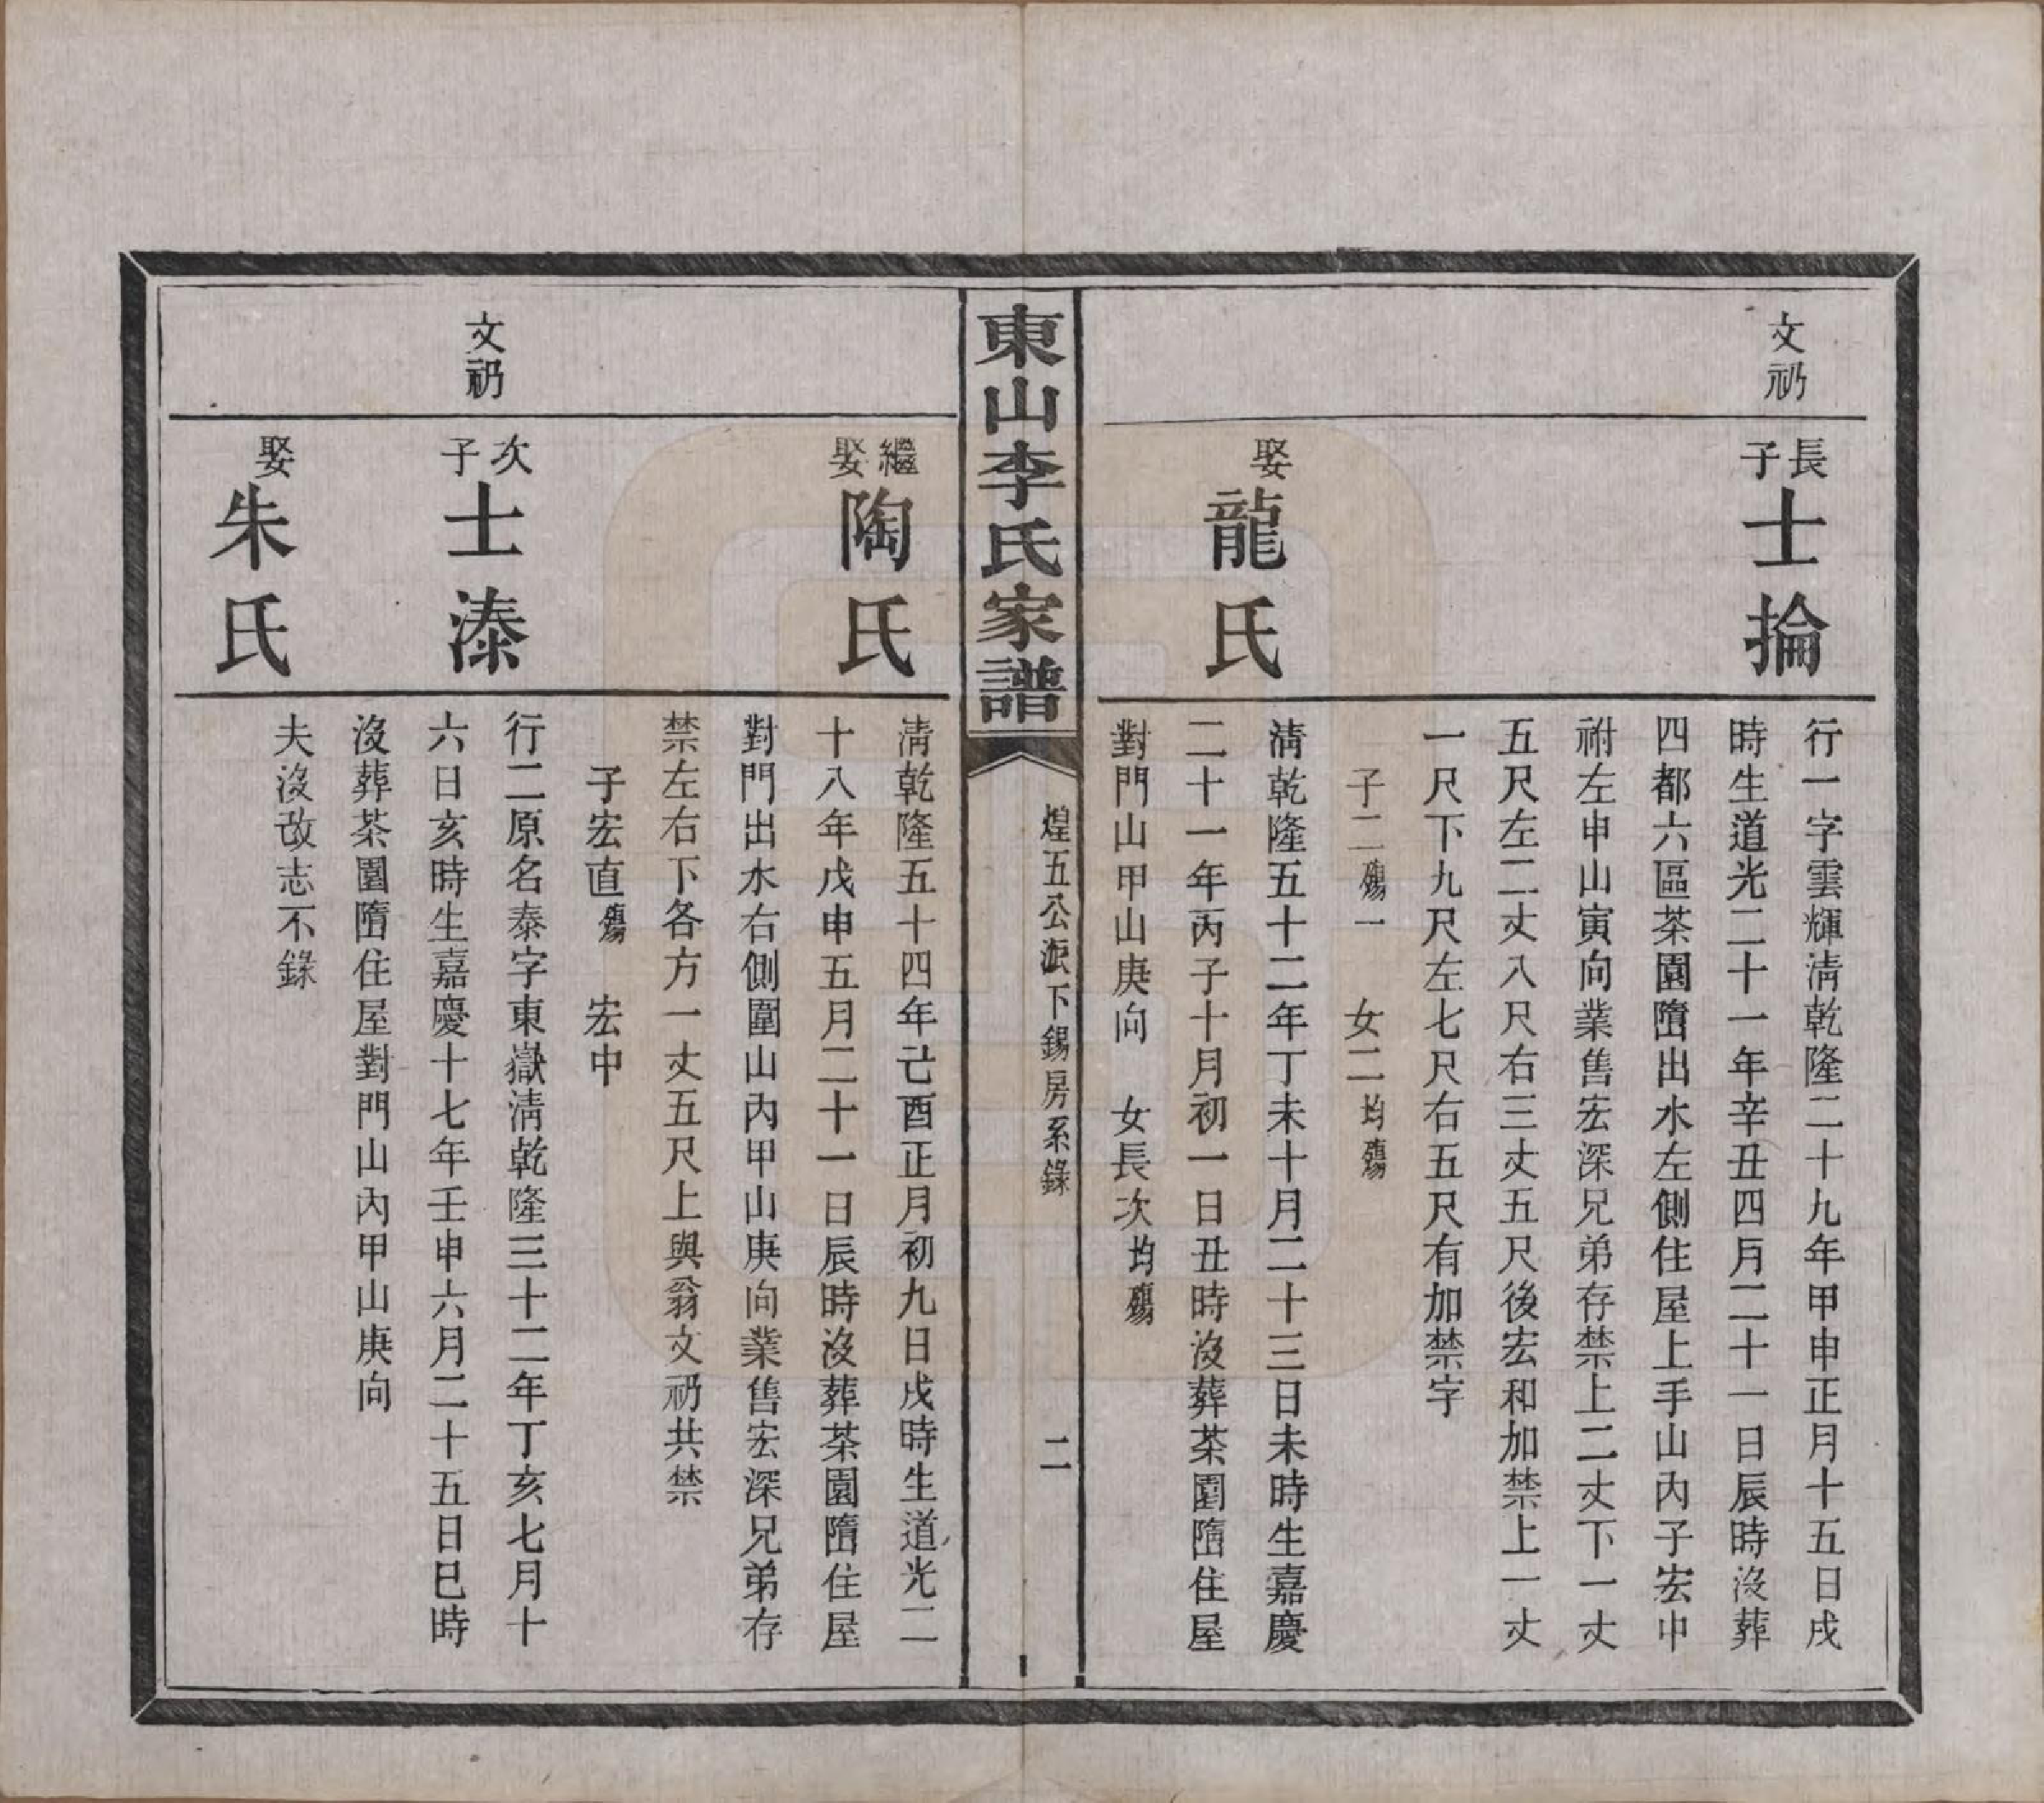 文礽
長子
士掄
行一字雲輝清乾隆二十九年甲申正月十五日戌
時生道光二十一年辛丑四月二十一日辰時沒葬
四都六區茶園墮出水左側住屋上手山內子宏中
祔左申山寅向業售宏深兄弟存禁上二丈下一丈
五尺左二丈八尺右三丈五尺後宏和加禁上一丈
一尺下九尺左七尺右五尺有加禁字
子二殤一　女二均殤
娶
龍氏
清乾隆五十二年丁未十月二十三日未時生嘉慶
二十一年丙子十月初一日丑時沒葬茶園墮住屋
對門山甲山庚向　女長次均殤
東山李氏家譜
煌五公派下錫房系錄
二
繼娶
陶氏
清乾隆五十四年己酉正月初九日戌時生道光二
十八年戊申五月二十一日辰時沒葬茶園墮住屋
對門出水右側圍山內甲山庚向業售宏深兄弟存
禁左右下各方一丈五尺上與翁文礽共禁
子宏直殤　宏中
文礽
次子
士溙
行二原名泰字東嶽清乾隆三十二年丁亥七月十
六日亥時生嘉慶十七年壬申六月二十五日巳時
沒葬茶園墮住屋對門山內甲山庚向
娶
朱氏
夫沒改志不錄